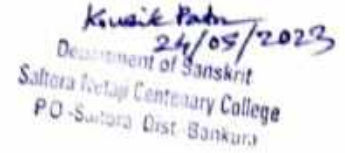 Kousik Patra
24/05/2023
Department of Sanskrit
Saltora Netaji Centenary College
P O -Saltora Dist.-Bankura